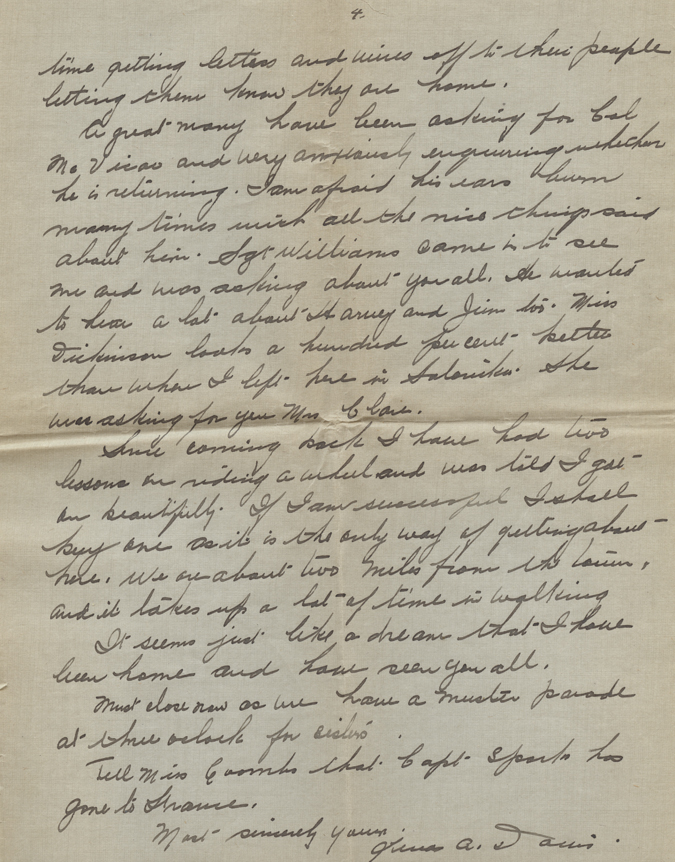 4.
time getting letters and wires off to their people
letting them know they are home.
A great many have been asking for Col
McVicar and very anxiously enquiring whether
he is returning. I am afraid his ears burn
many times with all the nice things said
about him. Sgt Williams came in to see
me and was asking about you all. He wanted
to hear a lot about Harvey and Jim too. Miss
Dickinson looks a hundred per cent better
than when I left here in Salonika. She
was asking for you Mrs Clare.
Since coming back I have had two
lessons on riding a wheel and was told I got
on beautifully. If I am successful I shall
buy one as it is the only way of getting about
here. We are about two miles from the town,
and it takes up a lot of time in walking
It seems just like a dream that I have
been home and have seen you all.
Must close now as we have a muster parade
at three oclock for sisters.
Tell Miss Coombs that Capt Sparks has
gone to France.
Most sincerely yours.
A. Davis.